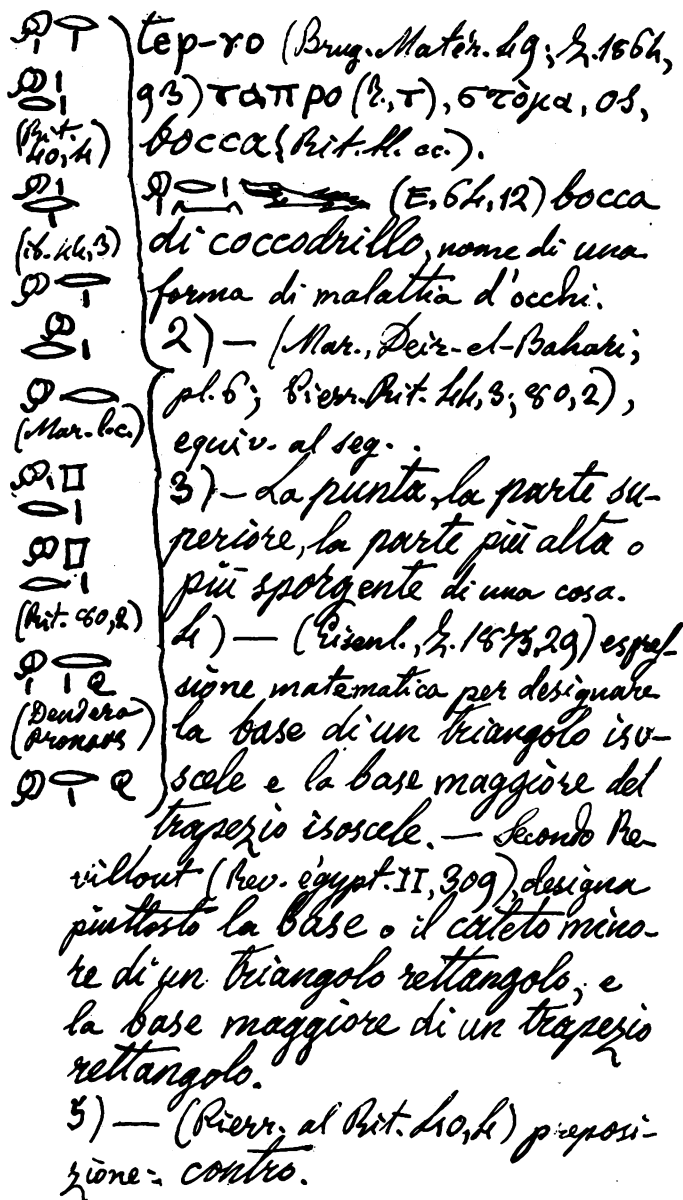 tep-ro (Brug. Matér. 49; Z. 1864,
93) ταπρο (?, τ), στόμα, os,
bocca (Rit. ll. cc.).
(Rit. 40, 4)
(E, 64, 12) bocca
di coccodrillo, nome di una
(ib. 44, 3)
forma di malattia d'occhi.
2) — (Mar., Deir-el-Bahari,
pl. 6; Pierr. Rit. 44, 3; 80, 2),
(Mar. l.c.)
equiv. al seg.
3) — La punta, la parte su-
periòre, la parte più alta o
più sporgente di una cosa.
(Rit. 80, 2)
4) — (Eisenl., Z. 1875, 29) espres-
siòne matematica per designare
(Dendera Pronaos)
la base di un triangolo iso-
scele e la base maggiòre del
trapezio isoscele. — Secondo Re-
villout (Rev. égypt. II, 309), designa
piuttosto la base o il catèto mino-
re di un triangolo rettangolo, e
la base maggiore di un trapezio
rettangolo.
5) — (Pierr. al Rit. 40, 4) preposi-
zione: contro.